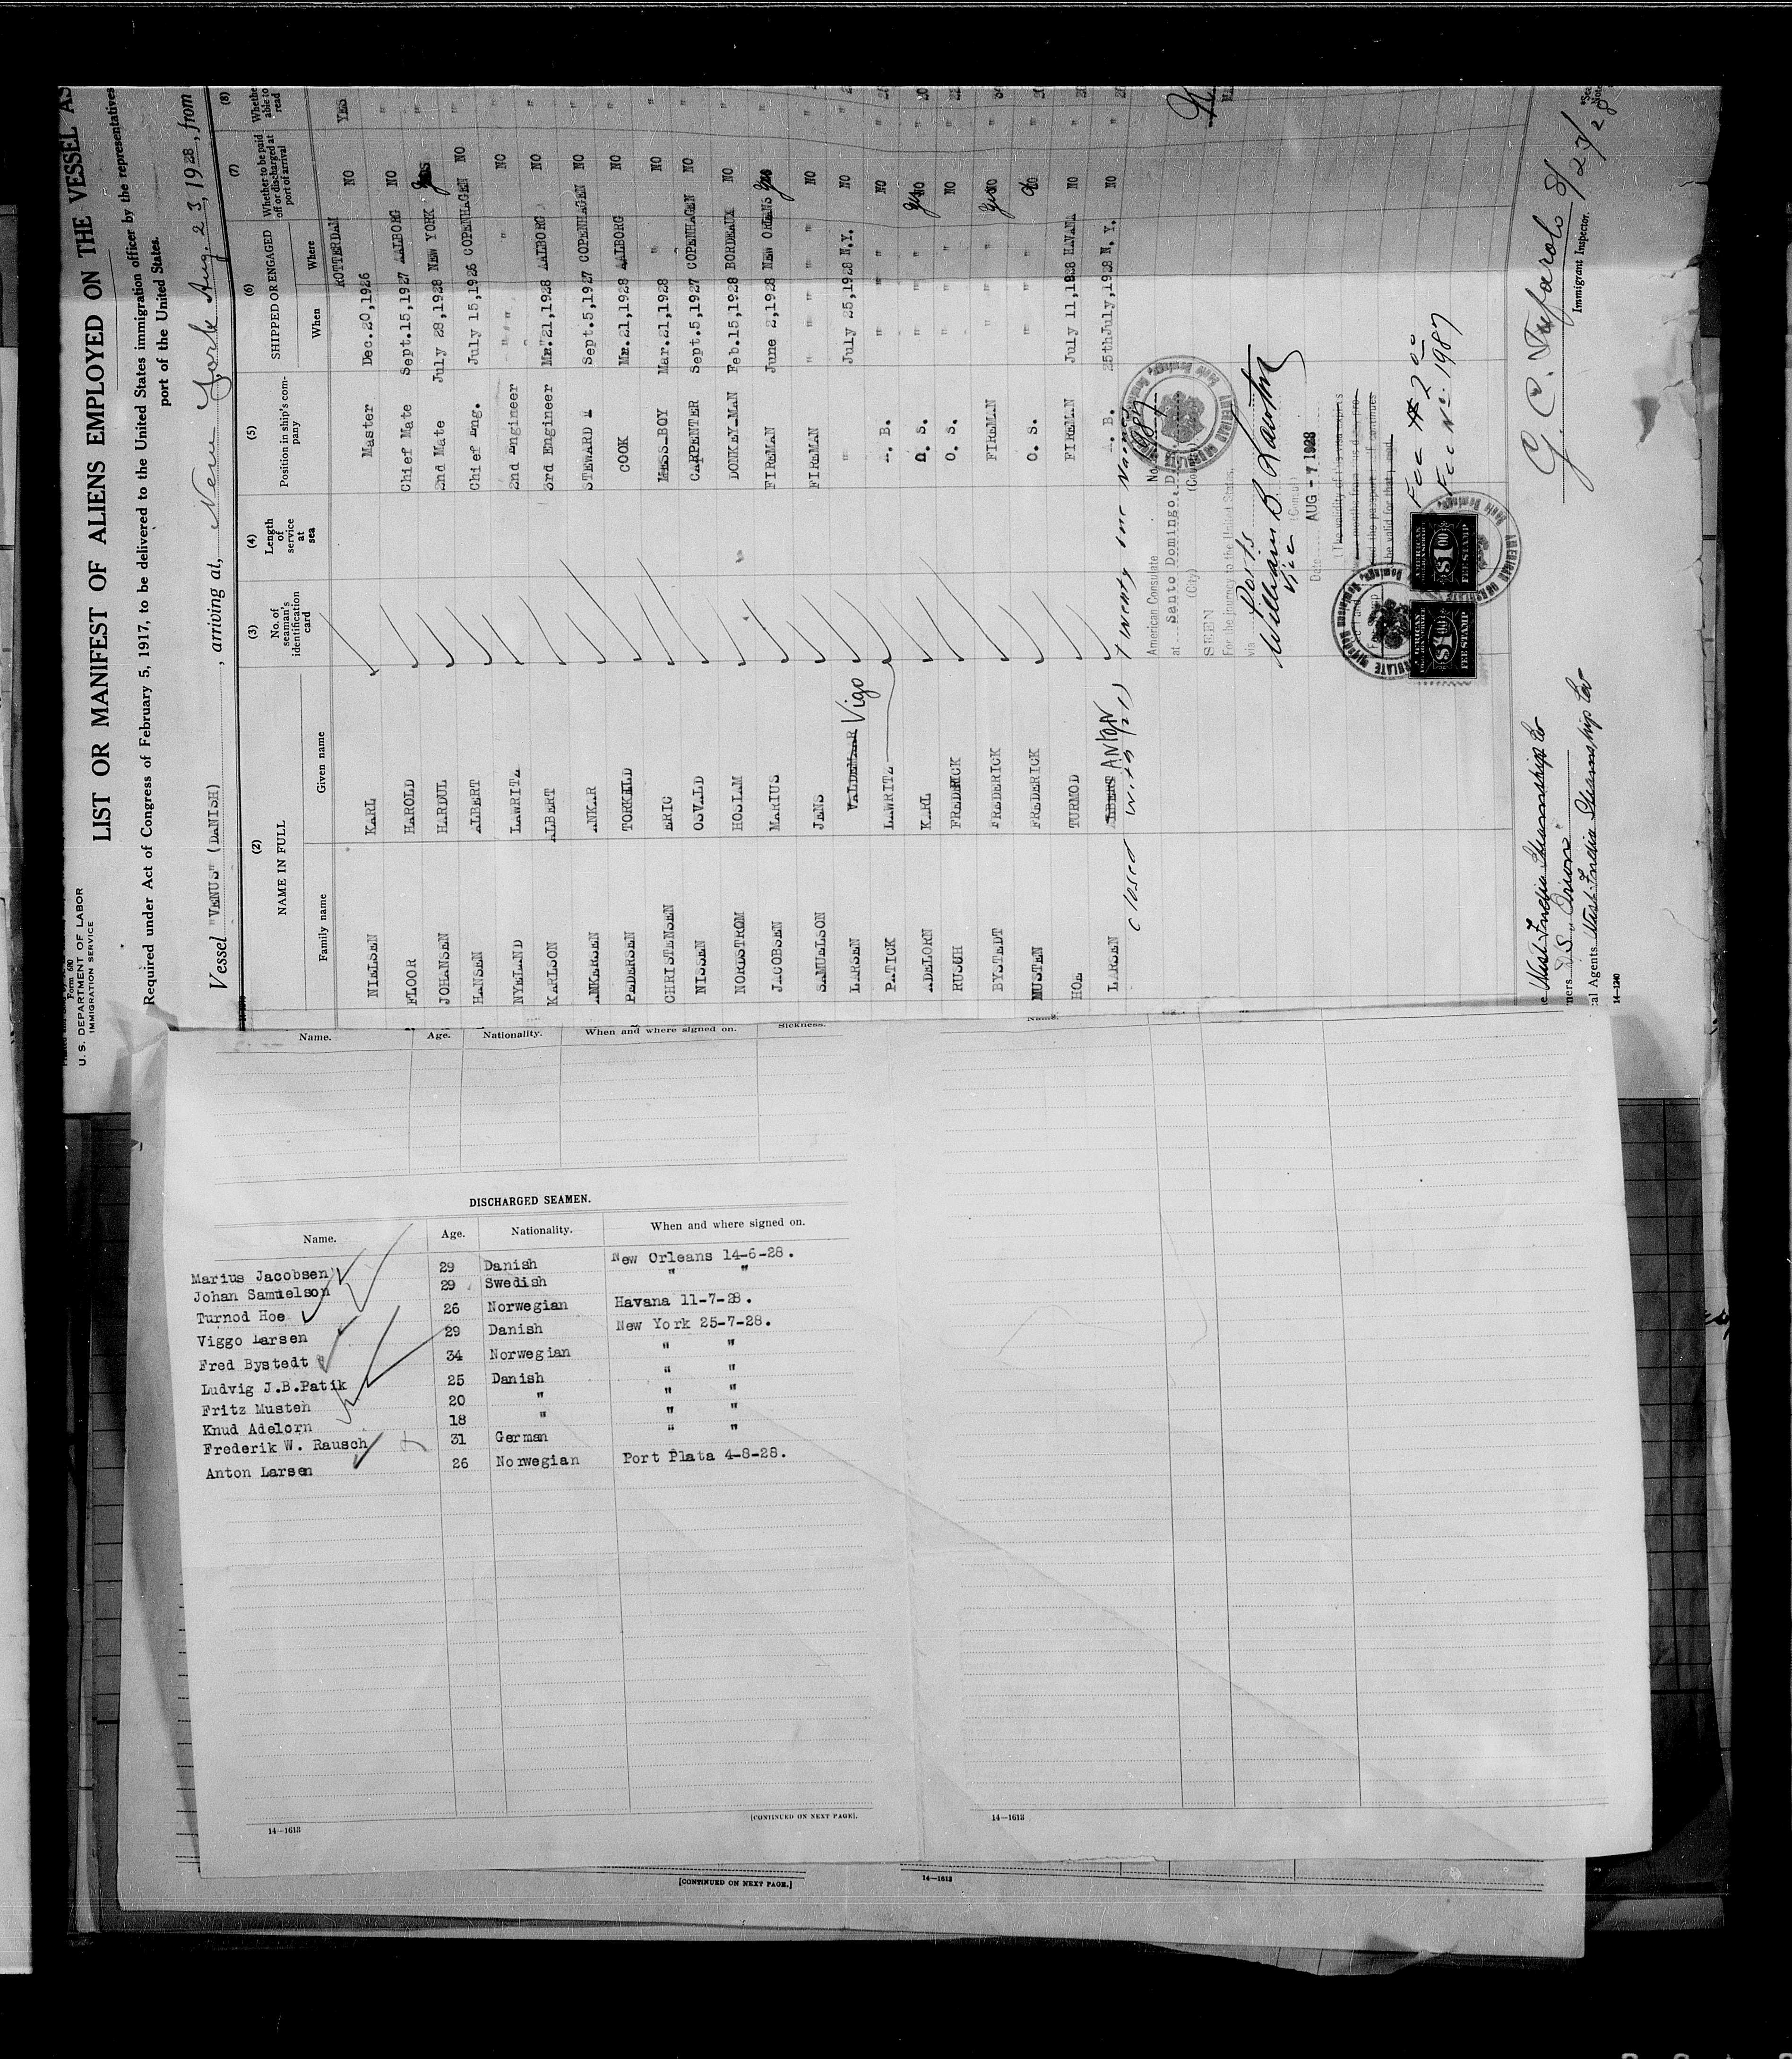 Form 680
U. S. DEPARTMENT OF LABOR
IMMIGRATION SERVICE
LIST OR MANIFEST OF ALIENS EMPLOYED ON THE VESSEL AS
Required under Act of Congress of February 5, 1917, to be delivered to the United States immigration officer by the representatives
port of the United States.
Vessel "VENUS" (DANISH) , arriving at, New York Aug. 23, 1928, from
(2) (3) (4) (5) (6) (7) (8)
NAME IN FULL No. of seaman's identification card Length of service at sea Position in ship's company SHIPPED OR ENGAGED Whether to be paid off or discharged at port of arrival Whether able to read
Family name Given name When Where
NIELSEN KARL Master Dec.20,1926 ROTTERDAM NO YES
FLOOR HAROLD Chief Mate Sept.15,1927 AALBORG NO "
JOHANSEN HARDUL 2nd Mate July 28,1928 NEW YORK yes "
HANSEN ALBERT Chief Eng. July 15,1926 COPENHAGEN NO "
NYELAND LAWRITZ 2nd Engineer " " " " NO "
KARLSON ALBERT 3rd Engineer Mr.21,1928 AALBORG NO "
ANKERSEN ANKAR STEWARD Sept.5,1927 COPENHAGEN NO "
PEDERSEN TORKELD COOK Mr.21,1928 AALBORG NO "
CHRISTENSEN ERIC MESS-BOY Mar.21,1928 " NO "
NISSEN OSVALD CARPENTER Sept.5,1927 COPENHAGEN NO "
NORDSTROM HOSIAM DONKEY-MAN Feb.15,1928 BORDEAUX NO "
JACOBSEN MARIUS FIREMAN June 2,1928 NEW ORLEANS yes "
SAMUELSON JENS FIREMAN " " " " NO "
LARSEN VALDEMAR Vigo " July 25,1928 N.Y. NO "
PATICK LAWRITZ A. B. " " NO "
ADELORN KARL O. S. " " yes NO "
RUSUH FREDERICK O. S. " " NO "
BYSTEDT FREDERICK FIREMAN " " yes NO "
MUSTEN FREDERICK O. S. " " NO "
HOE TURMOD FIREMAN July 11,1928 HAVANA NO "
LARSEN ALBERT ANTON A. B. 25thJuly,1928 N. Y. NO "
Closed with (21) twenty one names
American Consulate No. 1987
at Santo Domingo, D.
(City)
SEEN
For the journey to the United States.
via Ports
William B. Lawton
Vice (Consul)
Date AUG - 7 1928
(The validity of this visa expires
the passport continues
be valid for that period.
Fee $ 2 00
Fee No. 1987
AMERICAN CONSULATE Santo Domingo, Dominican Republic
AMERICAN
$1 00
FEE STAMP
AMERICAN
$1 00
FEE STAMP
West India Steamship Co
ners D/S "Orion"
al Agents West India Steamship Co
14—1240
G. C. Tufarolo 8/23/28
Immigrant Inspector.
Name. Age. Nationality. When and where signed on. Sickness.
Name.
DISCHARGED SEAMEN.
Name. Age. Nationality. When and where signed on.
Marius Jacobsen 29 Danish New Orleans 14-6-28.
Johan Samuelson 29 Swedish " "
Turnod Hoe 26 Norwegian Havana 11-7-28.
Viggo Larsen 29 Danish New York 25-7-28.
Fred Bystedt 34 Norwegian " "
Ludvig J.B.Patik 25 Danish " "
Fritz Musteh 20 " " "
Knud Adelorn 18 " " "
Frederik W. Rausch 31 German " "
Anton Larsen 26 Norwegian Port Plata 4-8-28.
14—1613
[CONTINUED ON NEXT PAGE].
14—1613
[CONTINUED ON NEXT PAGE.]
14—1613